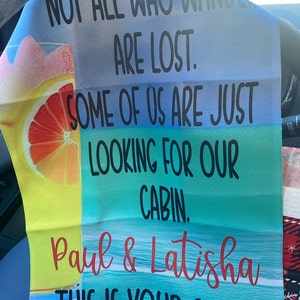 NOT ALL WHO WANDE
ARE LOST.
SOME OF US ARE JUST
LOOKING FOR OUR
CABIN.
Paul & Latisha
THIS IS YOUR